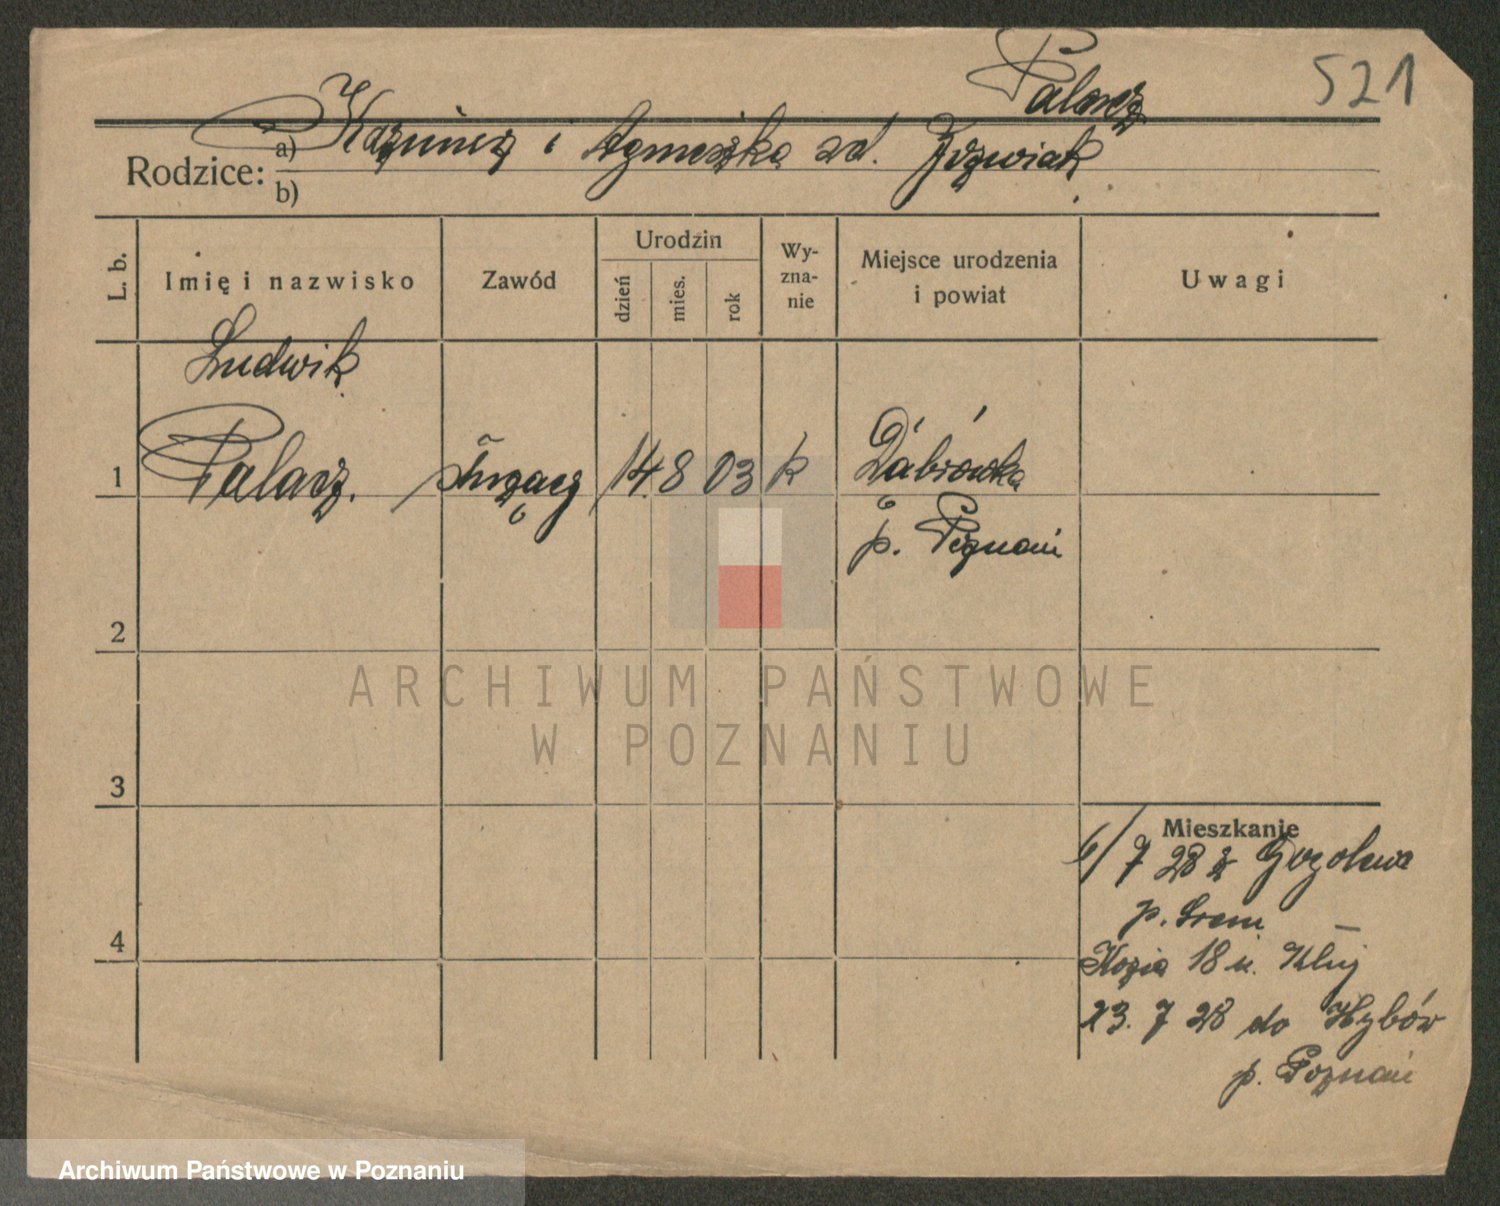 521
Palacz
Rodzice: a) Kazimierz i Agnieszka zd. Jozwiak
b)
L. b. Imię i nazwisko Zawód Urodzin dzień mies. rok Wy-zna-nie Miejsce urodzenia i powiat Uwagi
Ludwik
1 Palacz. służący 14 8 03 k Dąbrówka
p. Poznań
2
ARCHIWUM PAŃSTWOWE
W POZNANIU
3
Mieszkanie
6/7 28 z
p. Śrem
Kozia 18 u. Kluj
23. 7 28 do
p. Poznań
4
Archiwum Państwowe w Poznaniu